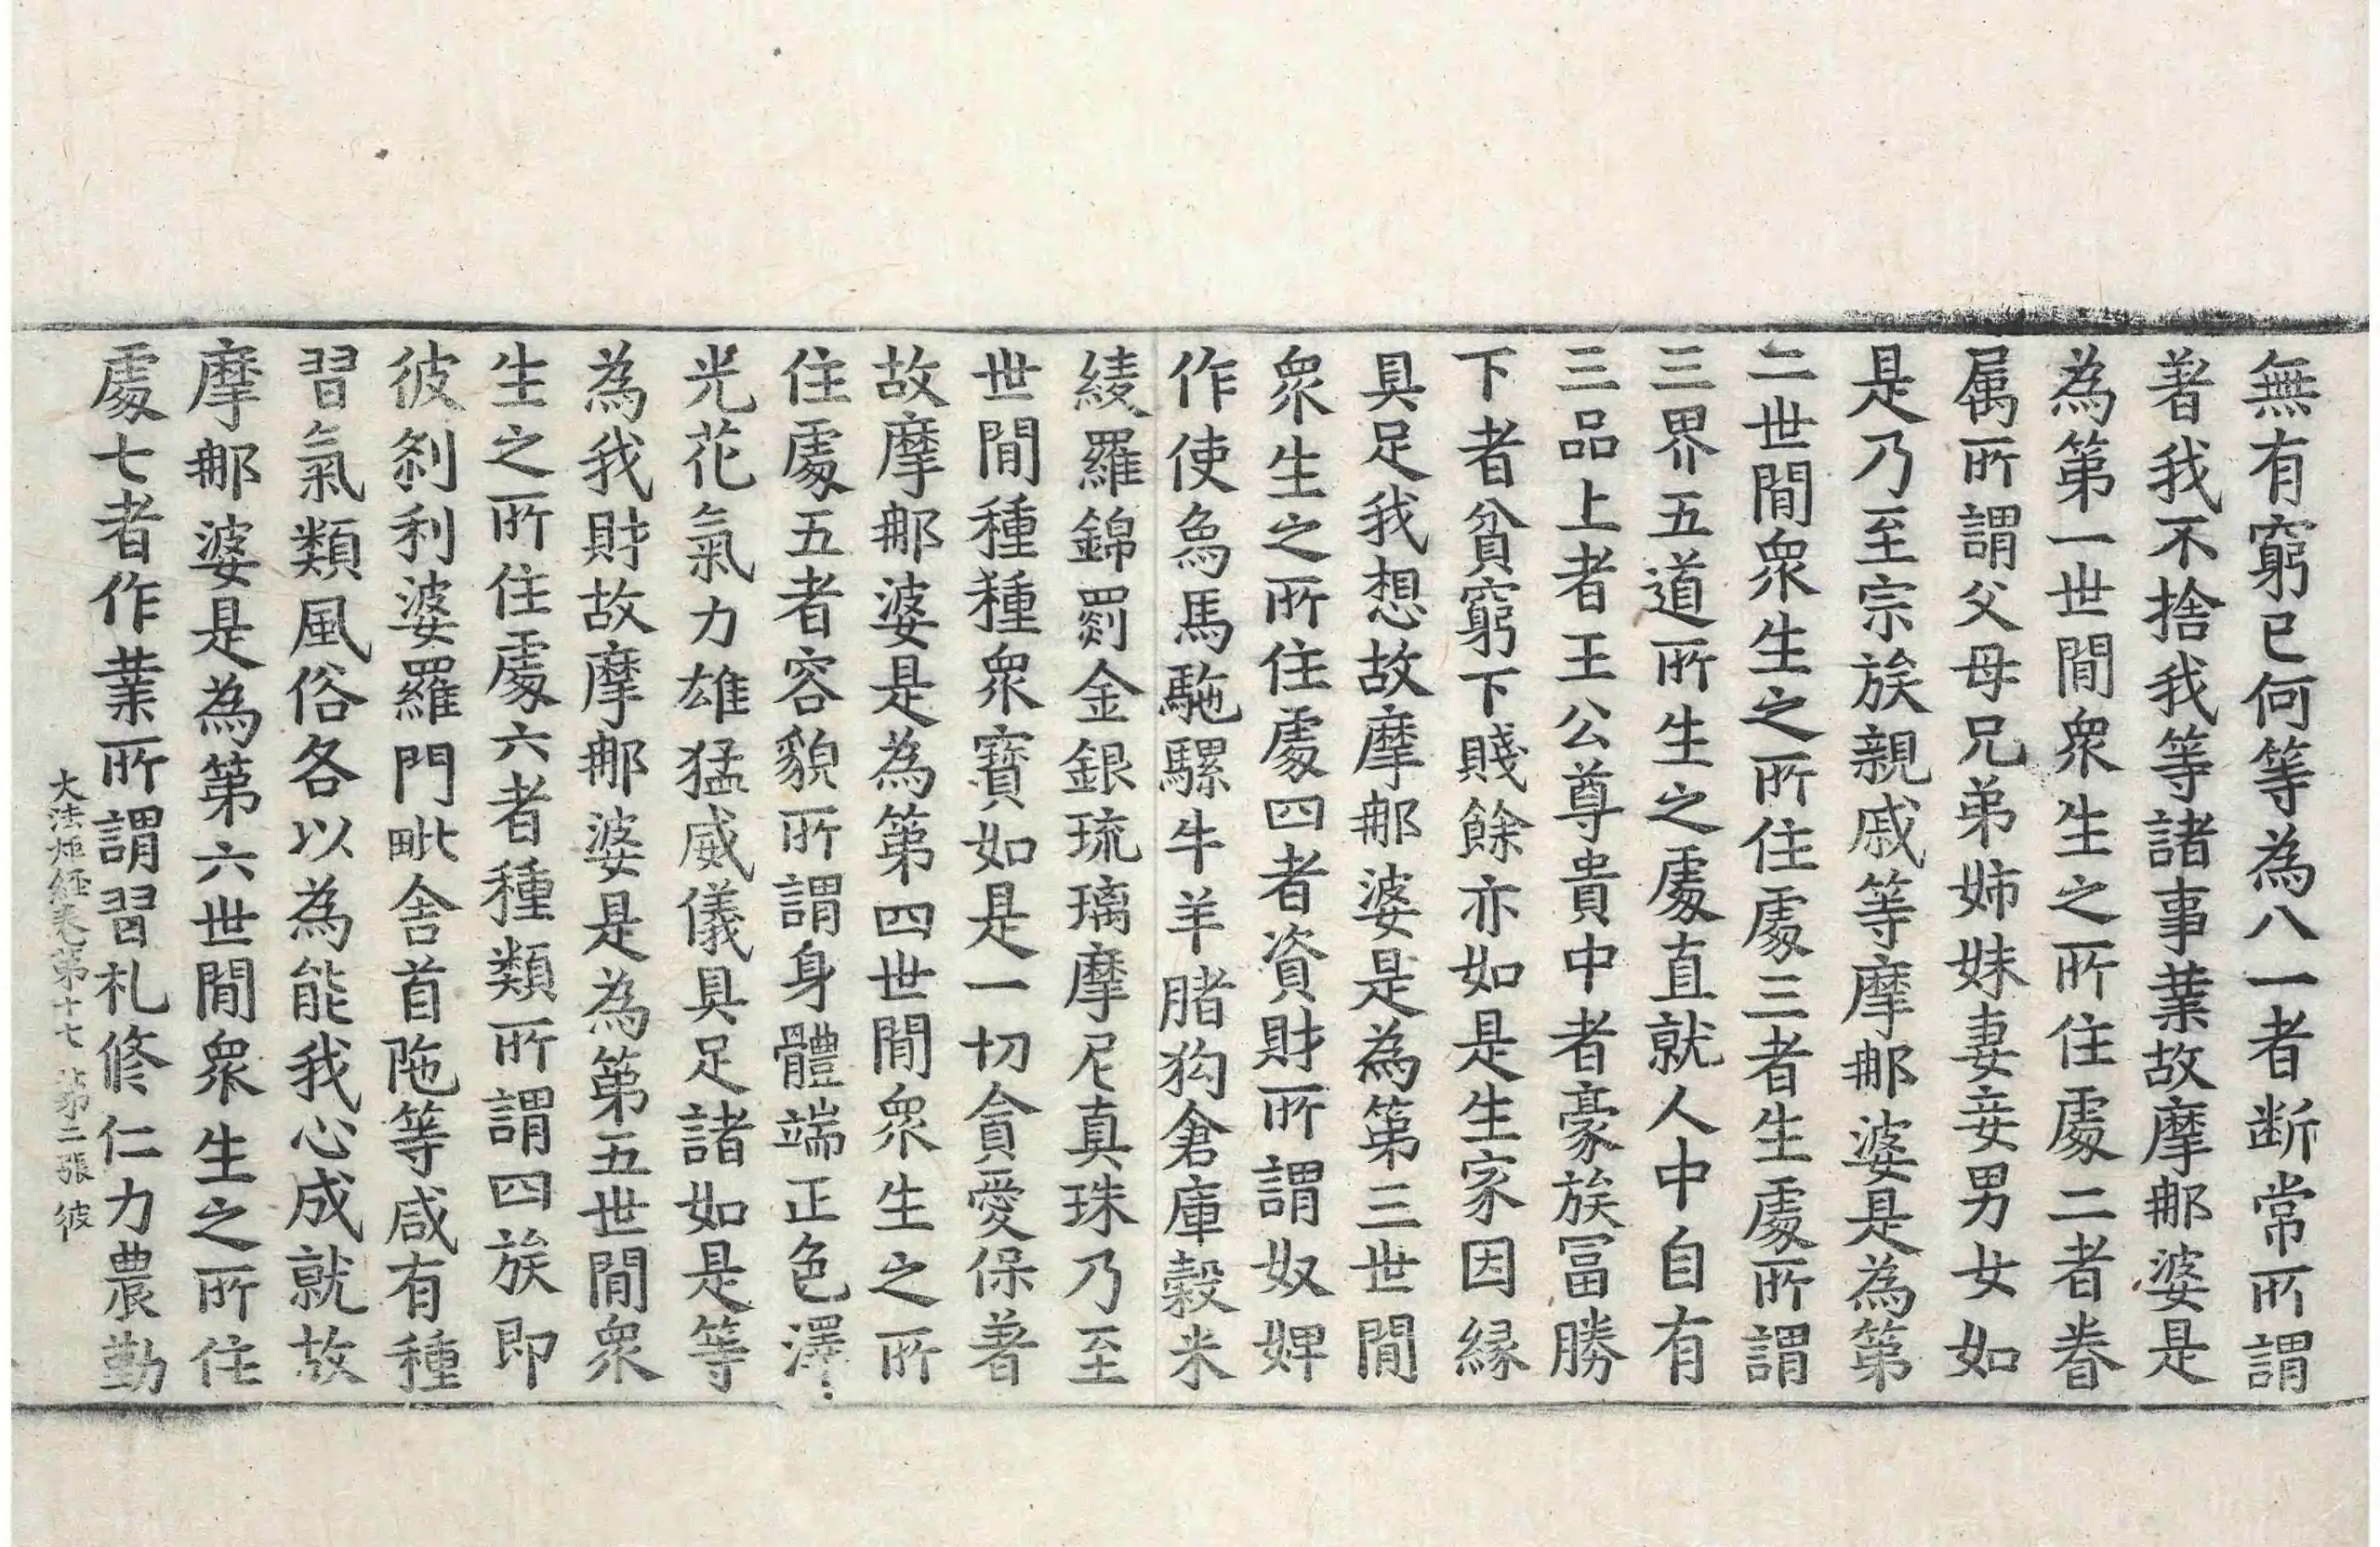 無有窮已何等為八一者断常所謂
著我不捨我等諸事業故摩那婆是
為第一世間衆生之所住處二者眷
属所謂父母兄弟姉妹妻妾男女如
是乃至宗族親戚等摩那婆是為第
二世間衆生之所住處三者生處所謂
三界五道所生之處直就人中自有
三品上者王公尊貴中者豪族冨勝
下者貧窮下賤餘亦如是生家因縁
具足我想故摩那婆是為第三世間
衆生之所住處四者資財所謂奴婢
作使為馬駞騾牛羊賭狗倉庫穀米
綾羅錦罽金銀琉璃摩尼真珠乃至
世間種種衆寶如是一切貪愛保著
故摩那婆是為第四世間衆生之所
住處五者容貌所謂身體端正色澤
光花氣力雄猛威儀具足諸如是等
為我財故摩那婆是為第五世間衆
生之所住處六者種類所謂四族即
彼刹利婆羅門毗舍首陁等咸有種
習氣類風俗各以為能我心成就故
摩那婆是為第六世間衆生之所住
處七者作業所謂習札修仁力農勤
大法炬経巻第十七 第二張 彼